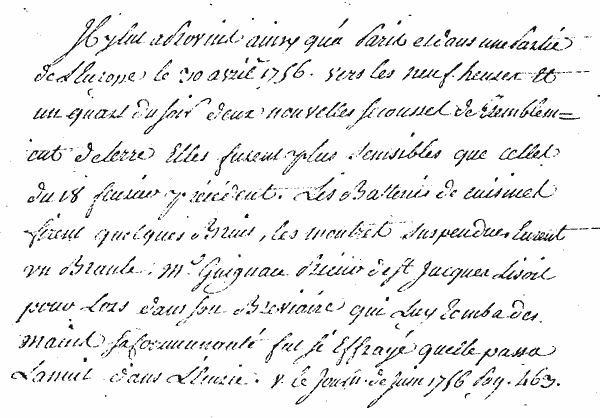 Il y eut a Provins ainsy qu'a Paris et dans une Partie
de L'Europe le 30 avril 1756. vers les neuf heures et
un quart du soir deux nouvelles secousses de tremblem=
ent de terre Elles furent plus sensibles que celles
du 18 fevrier precédent. Les Batteries de cuisines
firent quelques Bruis, les montres suspendues eurent
un Branle. Mr. Guignace Prieur de St Jacques Lisoit
pour Lors dans son Breviaire qui Luy tomba des
mains sa communauté fut si Effrayé quelle passa
La nuit dans L'Eurie. v. le Journ. de Juin 1756 pag. 463.